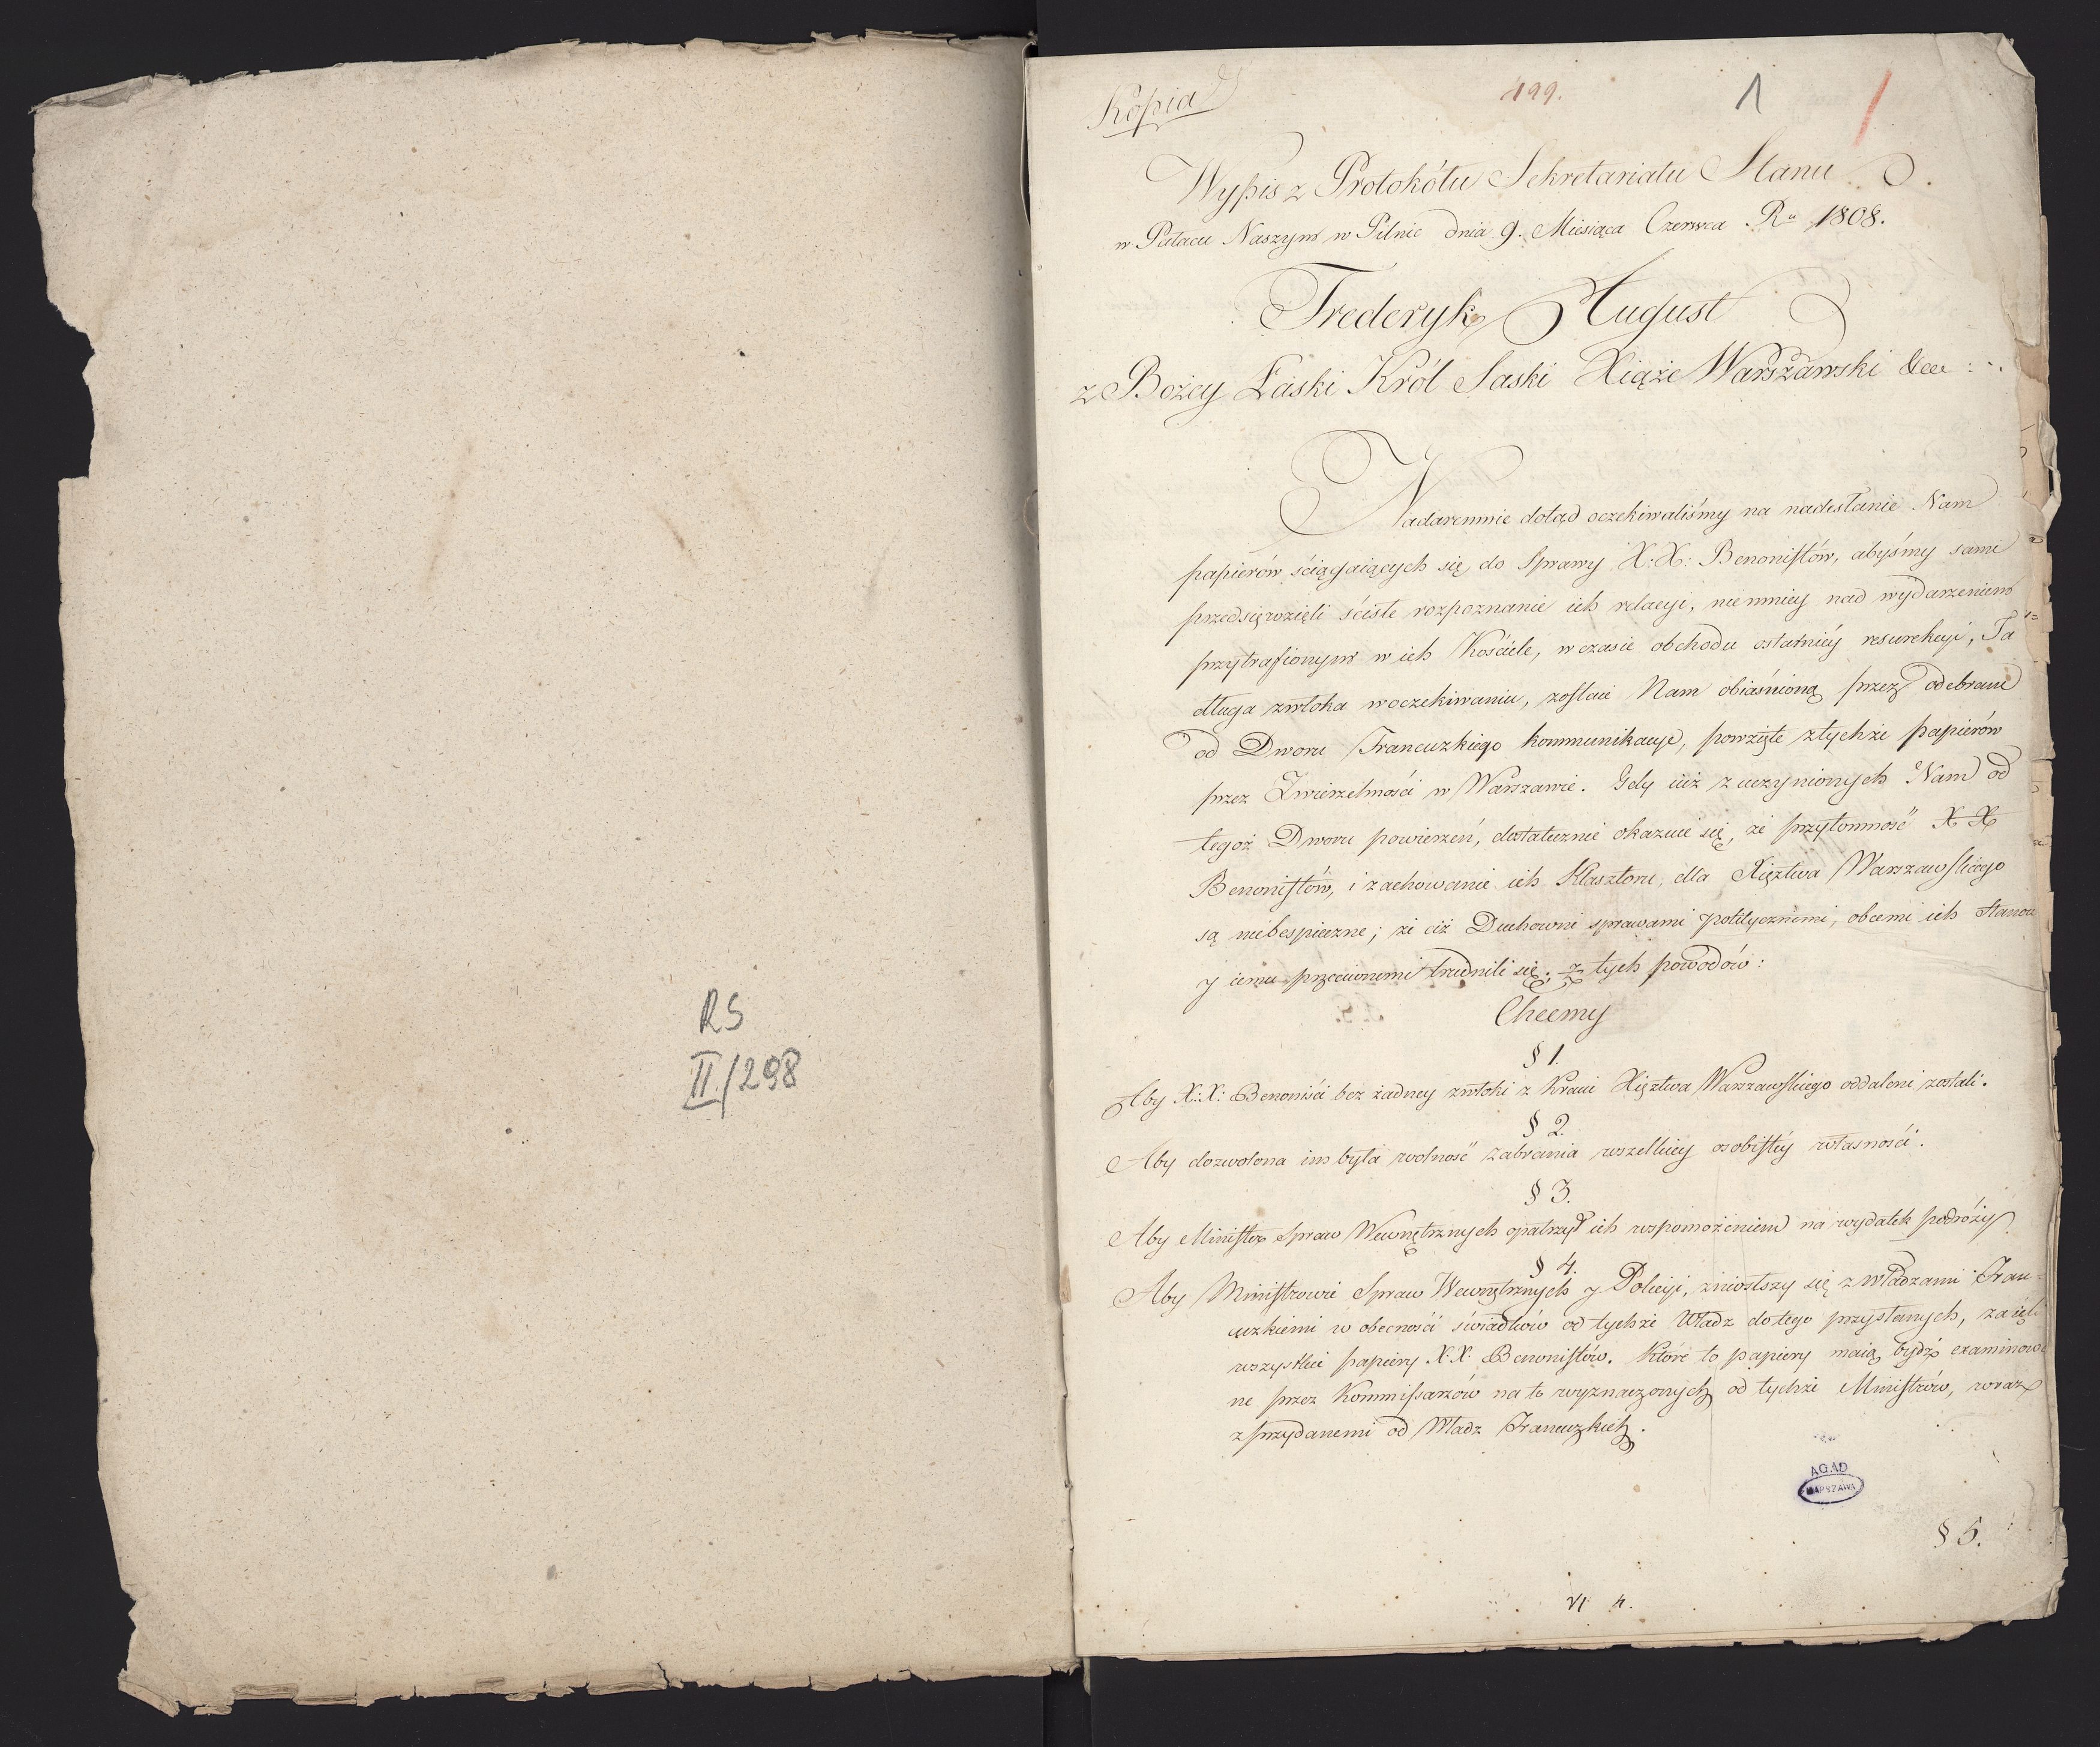 RS
II/298
Kopia
199.
1
Wypis z Protokółu Sekretariatu Stanu
w Pałacu Naszym w Pilnic dnia 9. Miesiąca Czerwca Ru 1808.
Frederyk August
z Bożey Łaski Król Saski Xiąże Warszawski &cc:
Nadaremnie dotąd oczekiwaliśmy na nadesłanie Nam
papierów ściągaiących się do Sprawy X: X: Benonistów, abyśmy sami
przedsięwzięli ściste rozpoznanie ich relacyi, niemniey nad wydarzeniem
przytrafionym w ich Kościele, w czasie obchodu ostatniéy resurekcyi, Ta
długa zwłoka w oczekiwaniu, zostaie Nam obiaśnioną przez odebrane
od Dworu Francuzkiego kommunikacye, powzięte z tychże papierów
przez Zwierzchności w Warszawie. Gdy iuż z uczynionych Nam od
tegoż Dworu powierzeń, dostatecznie okazuie się, że przytomność X X
Benonistów, i zachowanie ich Klasztoru, dla Xięztwa Warszawskiego
są niebespieczne; że ciż Duchowni sprawami politycznemi, obcemi ich Stanow
y iemu przeciwnemi trudnili się; z tych powodów:
Chcemy
§ 1.
Aby X: X: Benoniści bez żadney zwłoki z Kraiu Xięztwa Warszawskiego oddaleni zostali.
§ 2.
Aby dozwolona im była wolność zabrania wszelkiey osobistéy własności.
§ 3.
Aby Minister Spraw Wewnętrznych opatrzył ich wspomożeniem na wydatek podróży
§ 4.
Aby Ministrowie Spraw Wewnętrznych y Policyi, zniosłszy się z władzami Fran=
cuzkiemi w obecności świadków od tychże Władz do tego przysłanych, zaięli
wszystkie papiery X: X: Benonistów. Które to papiery maią bydź examinowa
ne przez Kommissarzów na to wyznaczonych od tychże Ministrów, wraz
z przydanemi od Władz Francuzkich.
AGAD
WARSZAWA
§ 5.
VI 4.